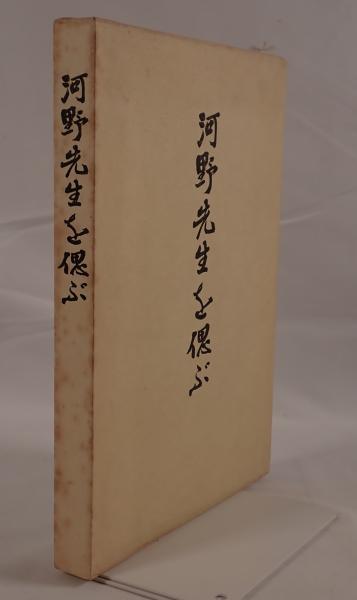 河野先生を偲ぶ
河野先生を偲ぶ